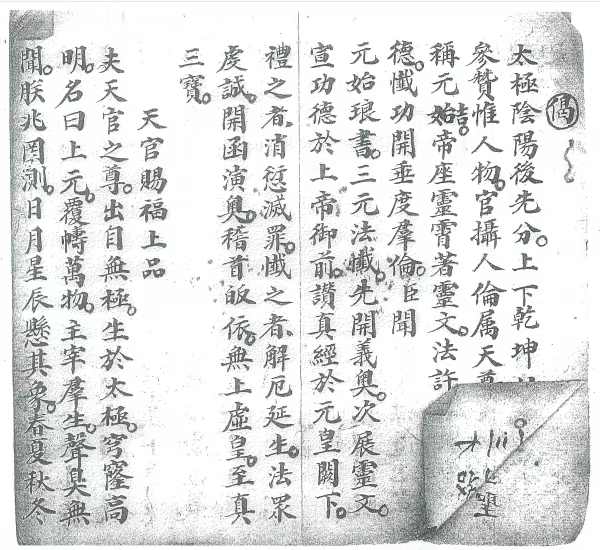 偈
太極陰陽後先分。上下乾坤
參贊惟人物。官攝人倫属天尊
稱元始帝座靈霄著靈文。法許
德。懺功開垂度羣倫。臣聞
元始琅書。三元法懺。先開義奥。次展靈文。
宣功德於上帝御前。讚真經於元皇闕下。
禮之者、消愆滅罪。懺之者、解厄延生。法眾
虔誠。開函演奥。稽首皈依。無上虛皇。至真
三寶。
天官賜福上品
夫天官之尊。出自無極。生於太極。穹窿高
明。名曰上元。覆幬萬物。主宰羣生。聲臭無
聞。朕兆罔測。日月星辰懸其象。春夏秋冬